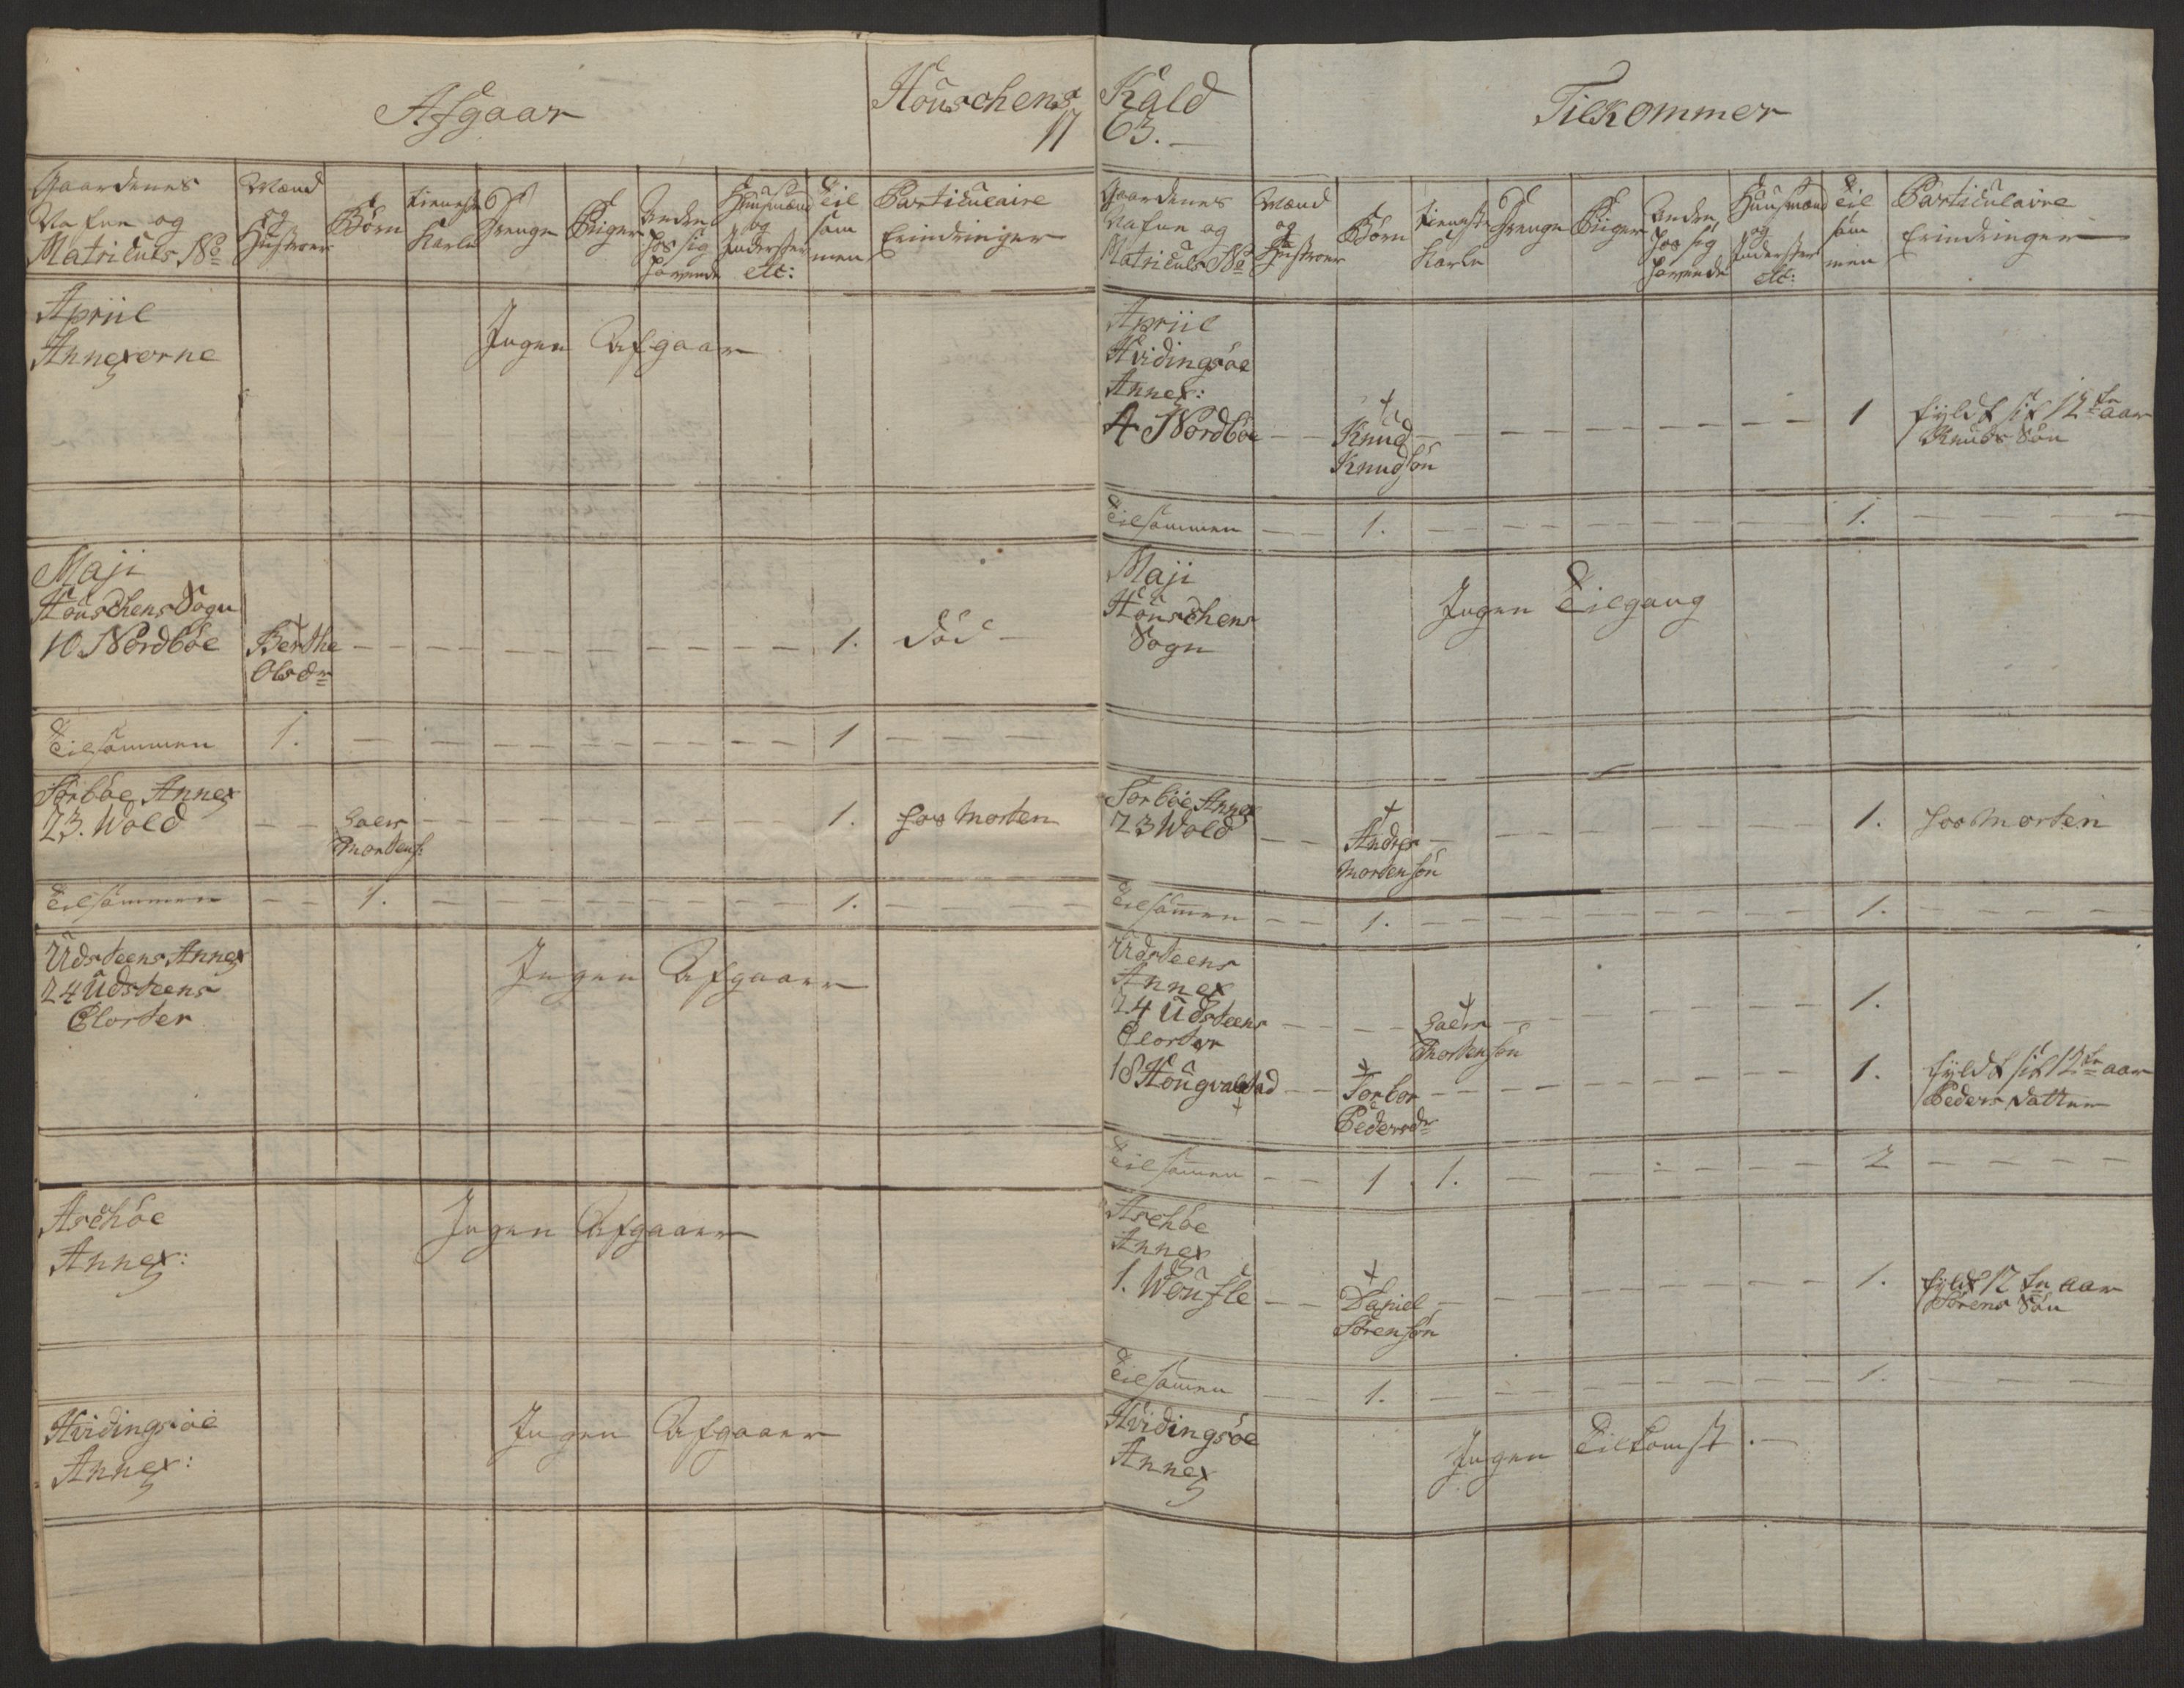 Afgaar
Houschens
17
Gaardenes
Nafne og
Matriculs No
Mænd
og
Hustroer
Børn
tieneste
Karle
Drenge
Piiger
Andre
hos sig
havende
Huusmænd
og
Inderster
etc:
Til
sam
men
Particulaire
Erindringer
Apriil
Annexerne
Ingen Afgaar
Maji
Houschens Sogn
10 Nordbøe
Berthe
Olsdr
1.
død
Tilsammen 1. 1
Sørbøe Annex
23. Wold
Laers
Mortens:
1.
hos Morten
Tilsammen 1. 1.
Udsteens Annex
24 Udsteens
Closter
Ingen Afgaaer
Aschøe
Annex:
Ingen Afgaaer
Hvidingsøe
Annex:
Ingen Afgaaer
Kald
63.
Tilkommer
Gaardenes
Nafne og
Matriculs No
Mænd
og
Hustroer
Børn
tieneste
Karle
Drenge
Piiger
Andre
hos sig
havende
Huusmænd
og
Inderster
etc:
Til
sam
men
Particulaire
Erindringer
Apriil
Hvidingsøe
Annex:
4 Nordbøe
Knud
Knudsøn
1
fyldt sit 12te aar
Knuds Søn
Tilsammen 1. 1.
Maji
Houschens
Sogn
Ingen Tilgang
Sørbøe Annex
23 Wold
Andres
Mortensøn
1.
hos Morten
Tilsamen 1. 1.
Udsteens
Annex
24 Udsteens
Closter
Laers
Mortensøn
1.
18 Hougvaldstad
Torbor
Pedersdr
1.
fyldt sit 12te aar
Peders datter
Tilsamen 1. 1. 2
Aschøe
Annex
1. Woufle
Daniel
Sørensøn
1.
fyldt 12te aar
Sørens Søn
Tilsamen 1. 1.
Hvidingsøe
Annex
Ingen Tilkomst.